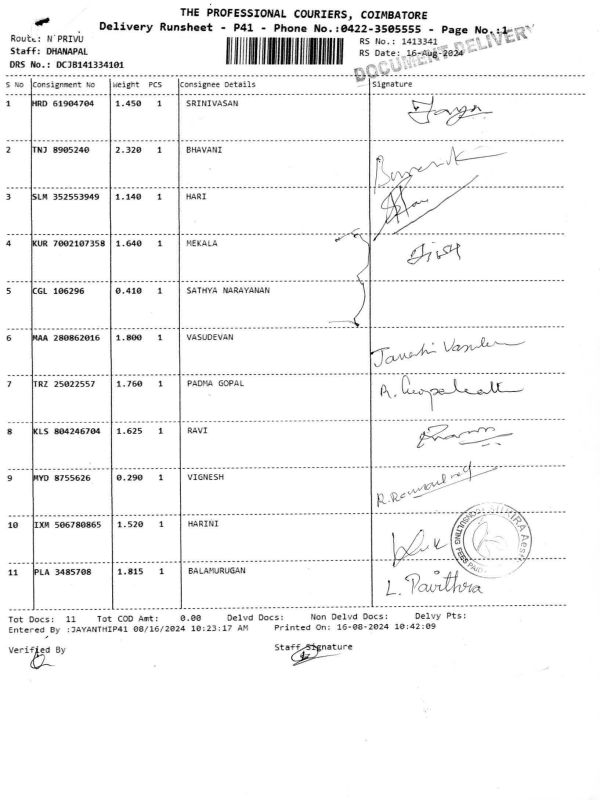 THE PROFESSIONAL COURIERS, COIMBATORE
Delivery Runsheet - P41 - Phone No.:0422-3505555 - Page No.:1
Route: N PRIVU
RS No.: 1413341
Staff: DHANAPAL
RS Date: 16-Aug-2024
DRS No.: DCJB141334101
DOCUMENT DELIVERY
S No Consignment No Weight PCS Consignee Details Signature
1 HRD 61904704 1.450 1 SRINIVASAN
2 TNJ 8905240 2.320 1 BHAVANI
3 SLM 352553949 1.140 1 HARI
4 KUR 7002107358 1.640 1 MEKALA
5 CGL 106296 0.410 1 SATHYA NARAYANAN
6 MAA 280862016 1.800 1 VASUDEVAN
7 TRZ 25022557 1.760 1 PADMA GOPAL
8 KLS 804246704 1.625 1 RAVI
9 MYD 8755626 0.290 1 VIGNESH
10 IXM 506780865 1.520 1 HARINI
11 PLA 3485708 1.815 1 BALAMURUGAN L. Pavithra
Tot Docs: 11 Tot COD Amt: 0.00 Delvd Docs: Non Delvd Docs: Delvy Pts:
Entered By :JAYANTHIP41 08/16/2024 10:23:17 AM Printed On: 16-08-2024 10:42:09
Verified By Staff Signature